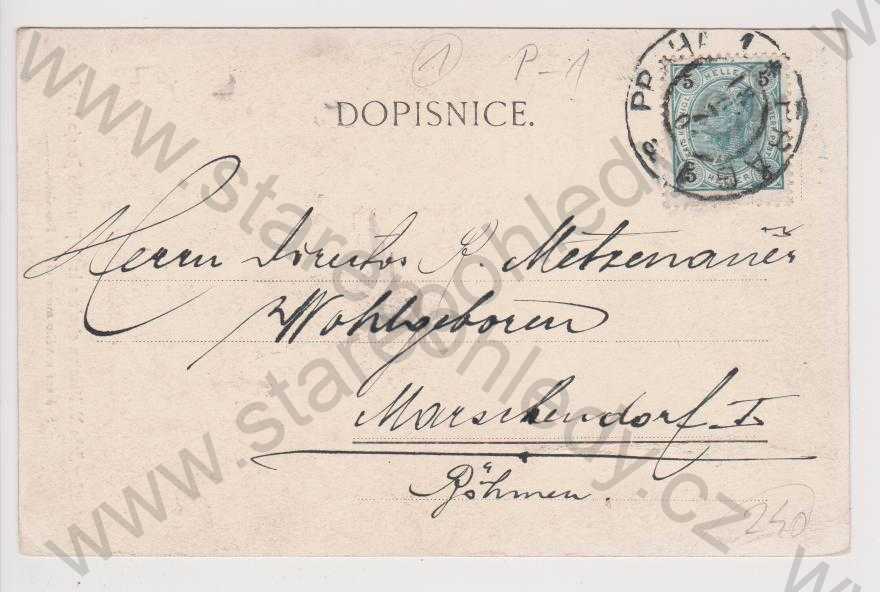 1 P-1
DOPISNICE.
PRAHA 1
PRAG
5 HELLER 5
5 HELLER 5
Herrn Director R. Metzenauer
Wohlgeboren
Marschendorf I
Böhmen.
240
www.starepohledy.cz